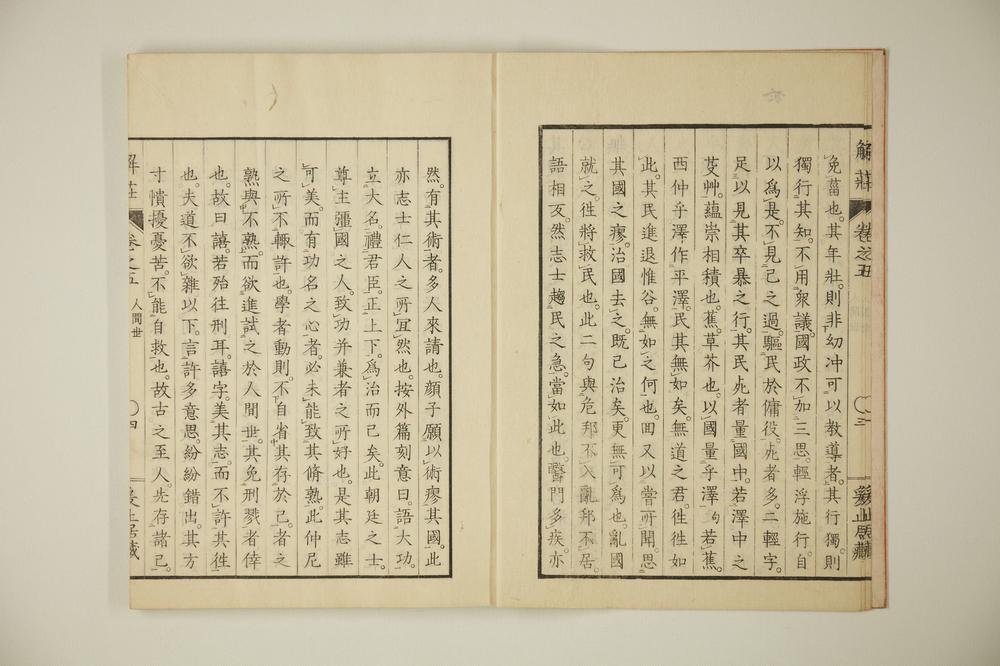 解莊 卷之五 ○三
免菑也。其年壯。則非幼冲可以教導者。其行獨。則
獨行其知。不用衆議。國政不加三思。輕浮施行。自
以爲是。不見己之過。驅民於傭役。死者多。二輕字。
足以見其卒暴之行。其民死者量國中。若澤中之
芟艸。蘊崇相積也。蕉。草芥也。以國量乎澤句若蕉。
西仲乎澤作平澤。民其無如矣。無道之君。徃徃如
此。其民進退惟谷。無如之何也。囬又以嘗所聞思
其國之瘳。治國去之。既已治矣。更無可爲也。亂國
就之。徃將救民也。此二句與危邦不入亂邦不居。
語相反。然志士趨民之急。當如此也。醫門多疾。亦
然。有其術者。多人來請也。顏子願以術瘳其國。此
亦志士仁人之所冝然也。按外篇刻意曰。語大功。
立大名。禮君臣。正上下。爲治而已矣。此朝廷之士。
尊主彊國之人。致功并兼者之所好也。是其志雖
可美。而有功名之心者。必未能致其脩熟。此仲尼
之所不輙許也。學者動則。不自省其存於己。者之
熟與不熟。而欲進試之於人間世。其免刑戮者倖
也。故曰譆。若殆往刑耳。譆字。美其志。而不許其徃
也。夫道不欲雜以下。言許多意思。紛紛錯出。其方
寸憒擾憂苦。不能自救也。故古之至人。先存諸己。
解莊 卷之五 人間世 ○四